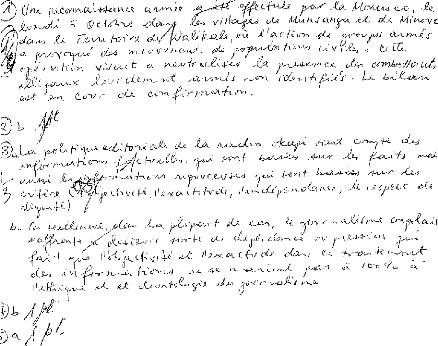 ① Une reconnaissance armée a été effectuée par la Monusco, le
lundi 5 Octobre dans les villages de Munsanga et de Minove
dans le Territoire de Walikale, où l'action de groupes armés
a provoqué des mouvements de populations civiles. Cette
opération visait a neutraliser la présence des combattants
illégaux lourdement armés non identifiés. Le bilan
est en cour de confirmation.
② b 1pt
3 a. La politique éditoriale de la radio okapi tient compte des
informations factuelles qui sont basées sur les faits mais
aussi informations rigoureuses qui sont basées sur des
critère (objectivité, l'exactitude, l'indépendance, le respect de
dignité)
b. En realité, dans la plupart de cas, le journaliste congolais
affronte a plusieurs sorte de pression qui
fait que l'objectivité et l'exactitude dans le traitement
des informations ne se par à 100% à
l'éthique et et déontologie des journalisme
b 1 pt
a 1 pt